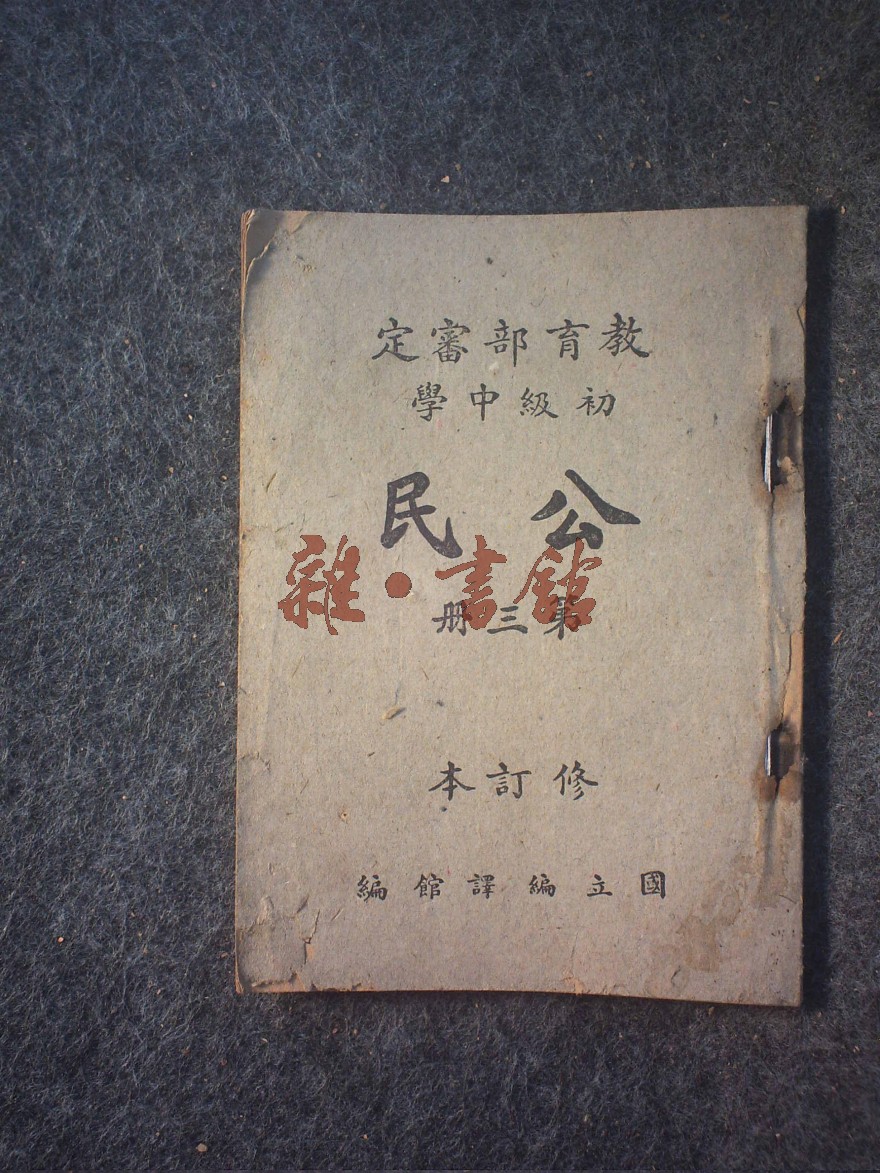 教育部審定
初級中學
公民
雜·書館
第三冊
修訂本
國立編譯館編